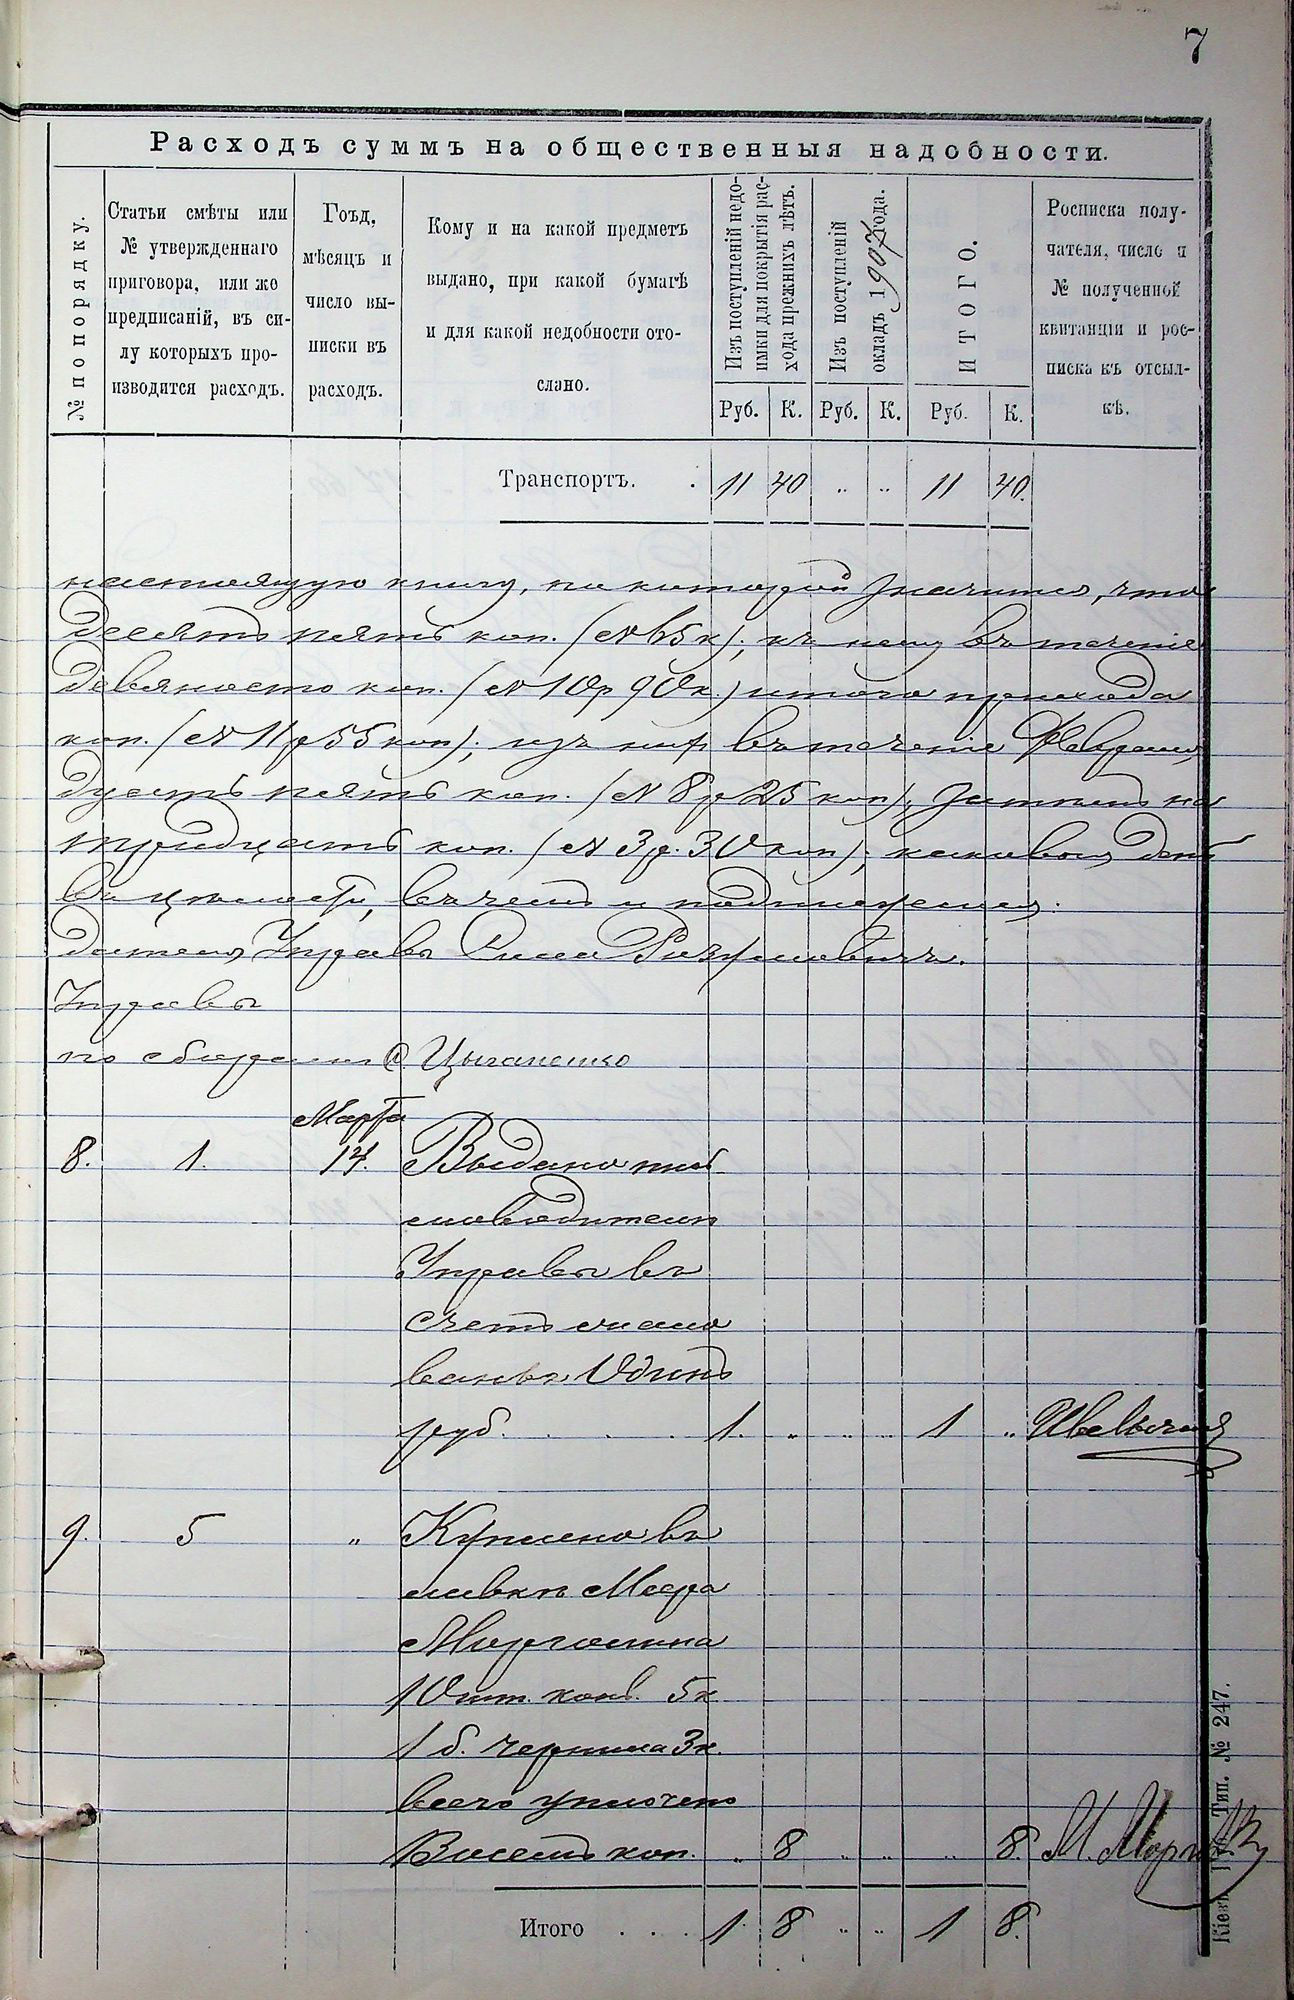 7
Расходъ суммъ на общественныя надобности.
№ по порядку.
Статьи смѣты или
№ утвержденнаго
приговора, или же
предписаній, въ си-
лу которыхъ про-
изводится расходъ.
Гоъд,
мѣсяцъ и
число вы-
писки въ
расходъ.
Кому и на какой предметъ
выдано, при какой бумагѣ
и для какой недобности ото-
слано.
Изъ поступленій недо-
имки для покрытія рас-
хода прежнихъ лѣтъ.
Изъ поступленій
окладъ 1907 года.
ИТОГО.
Росписка полу-
чателя, число и
№ полученной
квитанціи и рос-
писка къ отсыл-
кѣ.
Руб. К. Руб. К. Руб. К.
Транспортъ. . 11 40 „ „ 11 40.
настоящую книгу, по которой значится, что
десять пять коп. ( 65 к); къ нему въ теченіе
девяносто коп. ( 10 р 90 к.) итого прихода
коп. ( 11 р 55 коп); изъ нихъ въ теченіе Февраля
дцать пять коп. ( 8 р 25 коп); затемъ на
тридцать коп. ( 3 р. 30 коп); каковыя день
въ цѣлости, въ чемъ и подписуемся.
дателя Управы
Управы
по сборамъ Цыганенко
Марта
8. 1. 14. Выдано пись
моводителю
Управы въ
счетъ жало
ванья Одинъ
руб. . . . . 1. „ „ „ 1 „
9. 5 „ Куплено въ
лавкѣ Меера
Моргалина
10 шт. конв. 5 к
1 б. чернила 3 к.
всего уплочено
Восемь коп. „ 8 „ „ „ 8.
Итого . . . 1. 8 „ „ 1 8.
Тип. № 247.